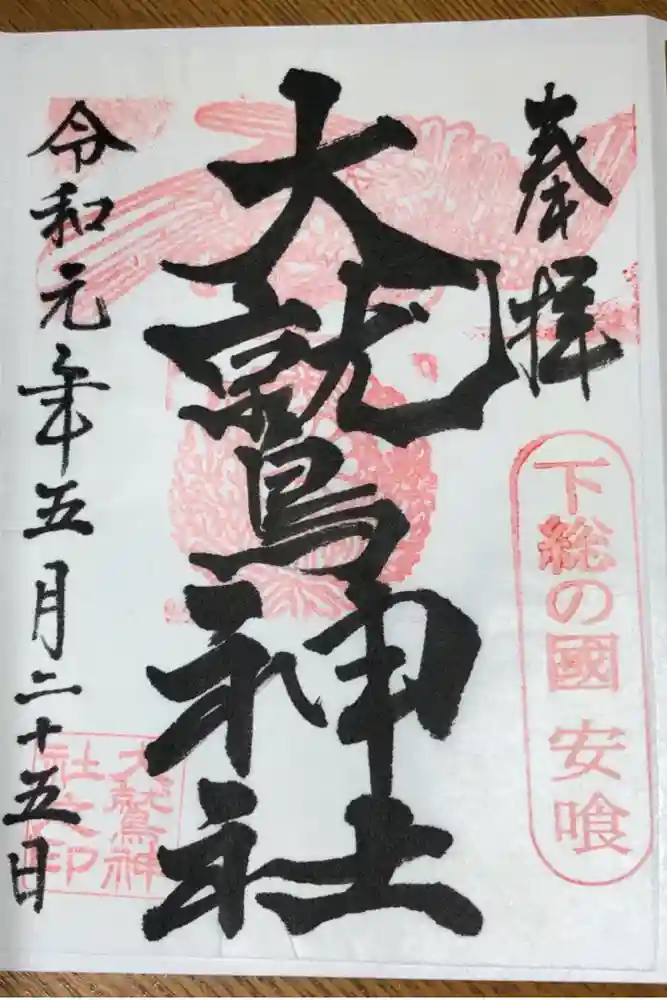 奉拝
下総の國 安喰
大鷲神社
大鷲神
社之印
令和元年五月二十五日